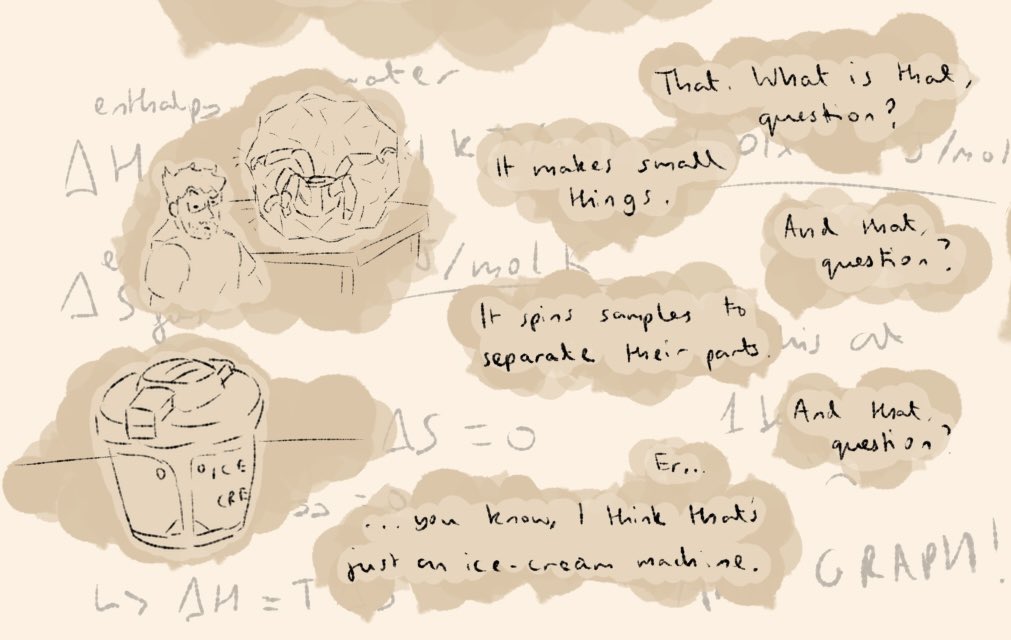 enthalpy
water
ΔH
J/mol
That. What is that,
question?
It makes small
things.
And that,
question?
J/molK
ΔS
It spins samples to
separate their parts.
this at
ΔS = 0
And that,
question?
Er...
...you know, I think that's
just an ice-cream machine.
ICE
CRE
GRAPH!
↳ ΔH = T